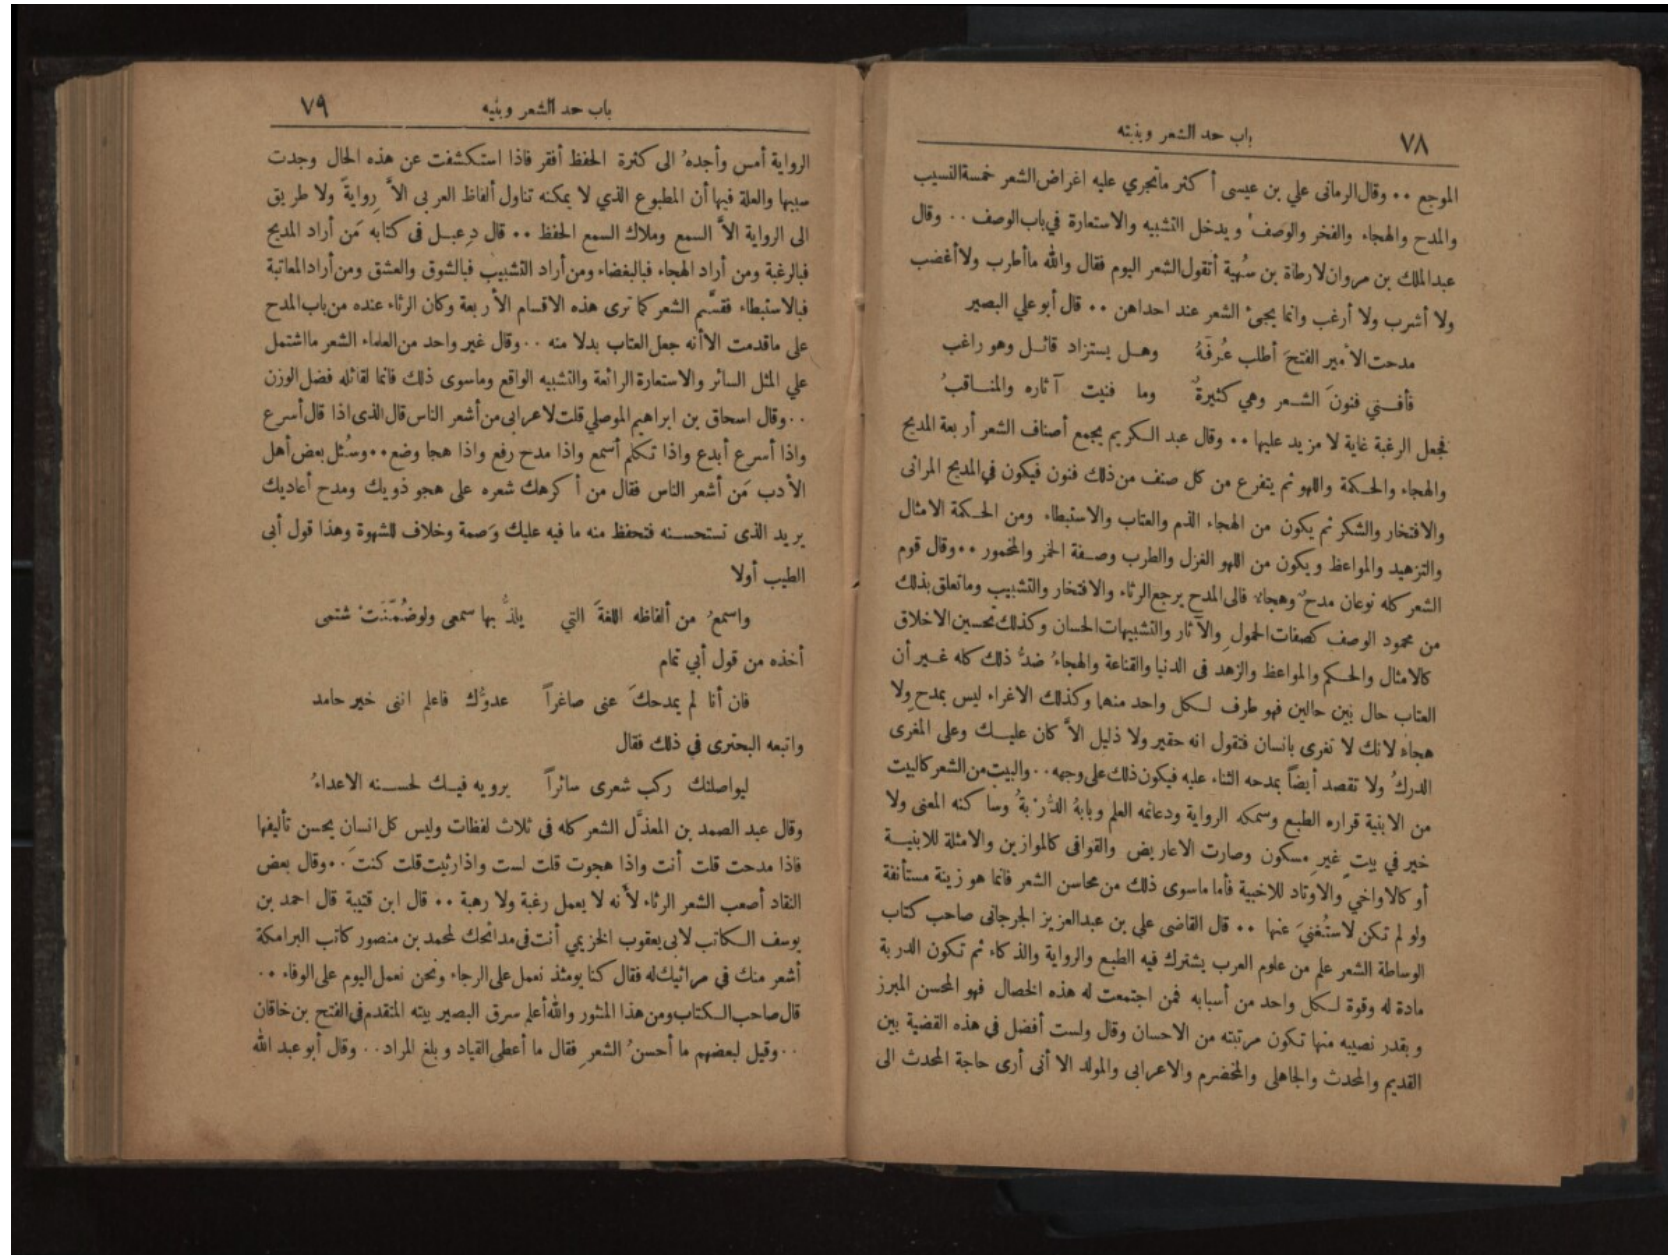 ٧٨
باب حد الشعر وبنيته
الموجع ٠٠ وقال الرمانى علي بن عيسى أكثر ماتجري عليه اغراض الشعر خمسة النسيب
والمدح والهجاء والفخر والوصف ويدخل التشبيه والاستعارة في باب الوصف ٠٠ وقال
عبد الملك بن مروان لارطاة بن سُهية أتقول الشعر اليوم فقال والله ماأطرب ولا أغضب
ولا أشرب ولا أرغب وانما يجيءُ الشعر عند احداهن ٠٠ قال أبو علي البصير
مدحت الامير الفتحَ أطلب عُرفَهُ وهـل يستزاد قائـل وهو راغب
فأفـني فنونَ الشـعر وهي كثيرةٌ وما فنيت آثاره والمنـاقبُ
فجعل الرغبة غاية لا مزيد عليها ٠٠ وقال عبد الـكريم يجمع أصناف الشعر أربعة المديح
والهجاء والحـكمة واللهو ثم يتفرع من كل صنف من ذلك فنون فيكون في المديح المراثى
والافتخار والشكر ثم يكون من الهجاء الذم والعتاب والاستبطاء ومن الحـكمة الامثال
والتزهيد والمواعظ ويكون من اللهو الغزل والطرب وصـفة الخمر والمخمور ٠٠ وقال قوم
الشعر كله نوعان مدحٌ وهجاءٌ فالى المدح يرجع الرثاء والافتخار والتشبيب وماتعلق بذلك
من محمود الوصف كصفات الحمول والآثار والتشبيهات الحسان وكذلك تحسين الاخلاق
كالامثال والحـكم والمواعظ والزهد فى الدنيا والقناعة والهجاءُ ضدُّ ذلك كله غـير أن
العتاب حال بين حالين فهو طرف لـكل واحد منهما وكذلك الاغراء ليس بمدح ولا
هجاء لانك لا تغرى بانسان فتقول انه حقير ولا ذليل الاَّ كان عليـك وعلى المغرى
الدركُ ولا تقصد أيضاً بمدحه الثناء عليه فيكون ذلك على وجهه ٠٠ والبيت من الشعر كالبيت
من الابنية قراره الطبع وسمكه الرواية ودعائمه العلم وبابهُ الدُّرْبةُ وساكنه المعنى ولا
خير في بيتٍ غيرِ مسكون وصارت الاعاريض والقوافى كالموازين والامثلة للابنيـة
أو كالاواخي والاوتاد للاخبية فأما ماسوى ذلك من محاسن الشعر فانما هو زينة مستأنفة
ولو لم تكن لاستُغنيَ عنها ٠٠ قال القاضى علي بن عبد العزيز الجرجانى صاحب كتاب
الوساطة الشعر علم من علوم العرب يشترك فيه الطبع والرواية والذكاء ثم تكون الدربة
مادة له وقوة لـكل واحد من أسبابه فمن اجتمعت له هذه الخصال فهو المحسن المبرز
وبقدر نصيبه منها تكون مرتبته من الاحسان وقال ولست أفضل في هذه القضية بين
القديم والمحدث والجاهلى والمخضرم والاعرابى والمولد الا أنى أرى حاجة المحدث الى
باب حد الشعر وبنيه
٧٩
الرواية أمس وأجدهُ الى كثرة الحفظ أفقر فاذا استكشفت عن هذه الحال وجدت
سببها والعلة فيها أن المطبوع الذي لا يمكنه تناول ألفاظ العربى الاَّ روايةً ولا طريق
الى الرواية الاَّ السمع وملاك السمع الحفظ ٠٠ قال دِعبـل فى كتابه مَن أراد المديح
فبالرغبة ومن أراد الهجاء فبالبغضاء ومن أراد التشبيب فبالشوق والعشق ومن أراد المعاتبة
فبالاستبطاء فقسَّم الشعر كما ترى هذه الاقسام الأربعة وكان الرثاء عنده من باب المدح
على ماقدمت الاأنه جعل العتاب بدلا منه ٠٠ وقال غير واحد من العلماء الشعر مااشتمل
علي المثل السائر والاستعارة الرائعة والتشبيه الواقع وماسوى ذلك فانما لقائله فضل الوزن
٠٠ وقال اسحاق بن ابراهيم الموصلي قلت لاعرابى من أشعر الناس قال الذى اذا قال أسرع
واذا أسرع أبدع واذا تكلم أسمع واذا مدح رفع واذا هجا وضع ٠٠ وسُئل بعض أهل
الأدب مَن أشعر الناس فقال من أكرهك شعره على هجو ذويك ومدح أعاديك
يريد الذى تستحسـنه فتحفظ منه ما فيه عليك وَصمة وخلاف للشهوة وهذا قول أبى
الطيب أولا
واسمعُ من ألفاظه اللغةَ التي يلذُّ بها سمعى ولو ضُمّنَتْ شتمى
أخذه من قول أبي تمام
فان أنا لم يمدحكَ عنى صاغراً عدوُّك فاعلم اننى خير حامد
واتبعه البحترى في ذلك فقال
ليواصلنك ركب شعرى سائراً يرويه فيـك لحسـنه الاعداءُ
وقال عبد الصمد بن المعذَّل الشعر كله فى ثلاث لفظات وليس كل انسان يحسن تأليفها
فاذا مدحت قلت أنت واذا هجوت قلت لست واذا رثيت قلت كنتَ ٠٠ وقال بعض
النقاد أصعب الشعر الرثاء لأنه لا يعمل رغبة ولا رهبة ٠٠ قال ابن قتيبة قال احمد بن
يوسف الـكاتب لابى يعقوب الخزيمي أنت فى مدائحك لمحمد بن منصور كاتب البرامكة
أشعر منك في مراثيك له فقال كنا يومئذ نعمل على الرجاء ونحن نعمل اليوم على الوفاء ٠٠
قال صاحب الـكتاب ومن هذا المنثور والله أعلم سرق البصير بيته المتقدم فى الفتح بن خاقان
٠٠ وقيل لبعضهم ما أحسنُ الشعرِ فقال ما أعطى القياد وبلغ المراد ٠٠ وقال أبو عبد الله